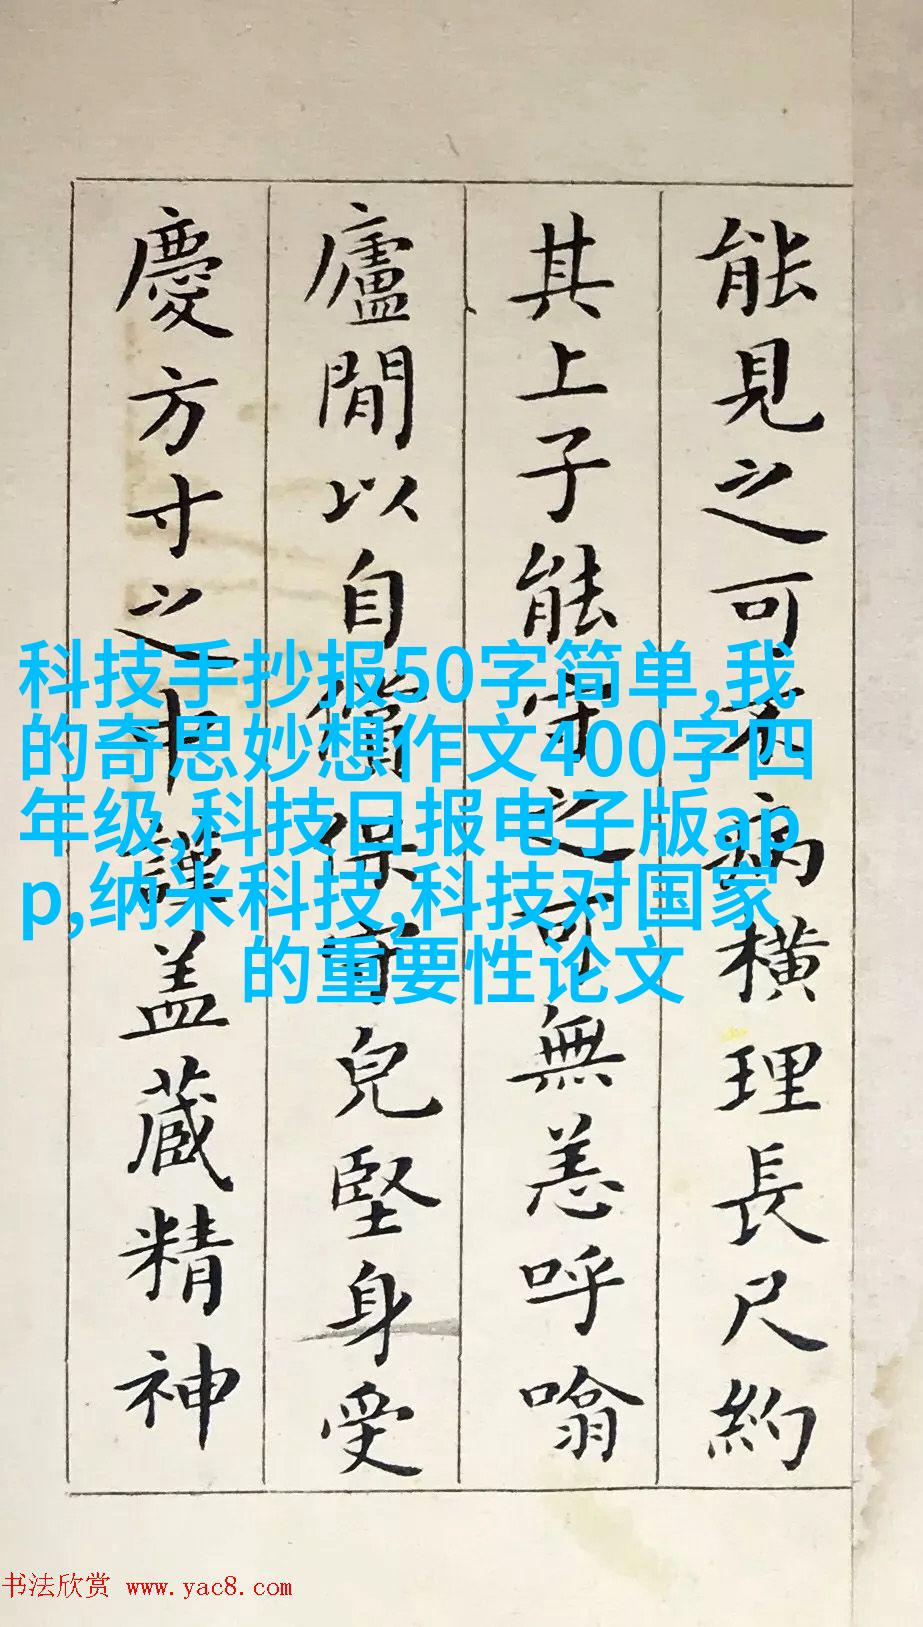 能見之可不病橫理長尺約
其上子能守之可無恙呼噏
廬間以自償保守兒堅身受
慶方寸之中謹盖藏精神
科技手抄报50字简单,我
的奇思妙想作文400字四
年级,科技日报电子版ap
p,纳米科技,科技对国家
的重要性论文
书法欣赏 www.yac8.com